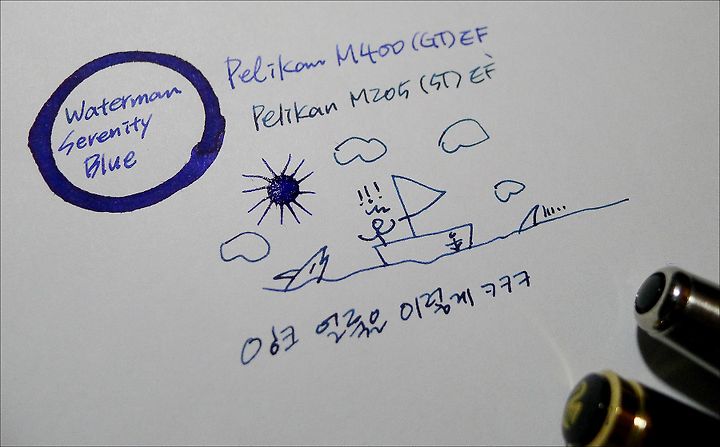 Waterman
Serenity
Blue
Pelikan M400 (GT) EF
Pelikan M205 (ST) EF
!!!
잉크 얼룩을 이렇게 ㅋㅋㅋ